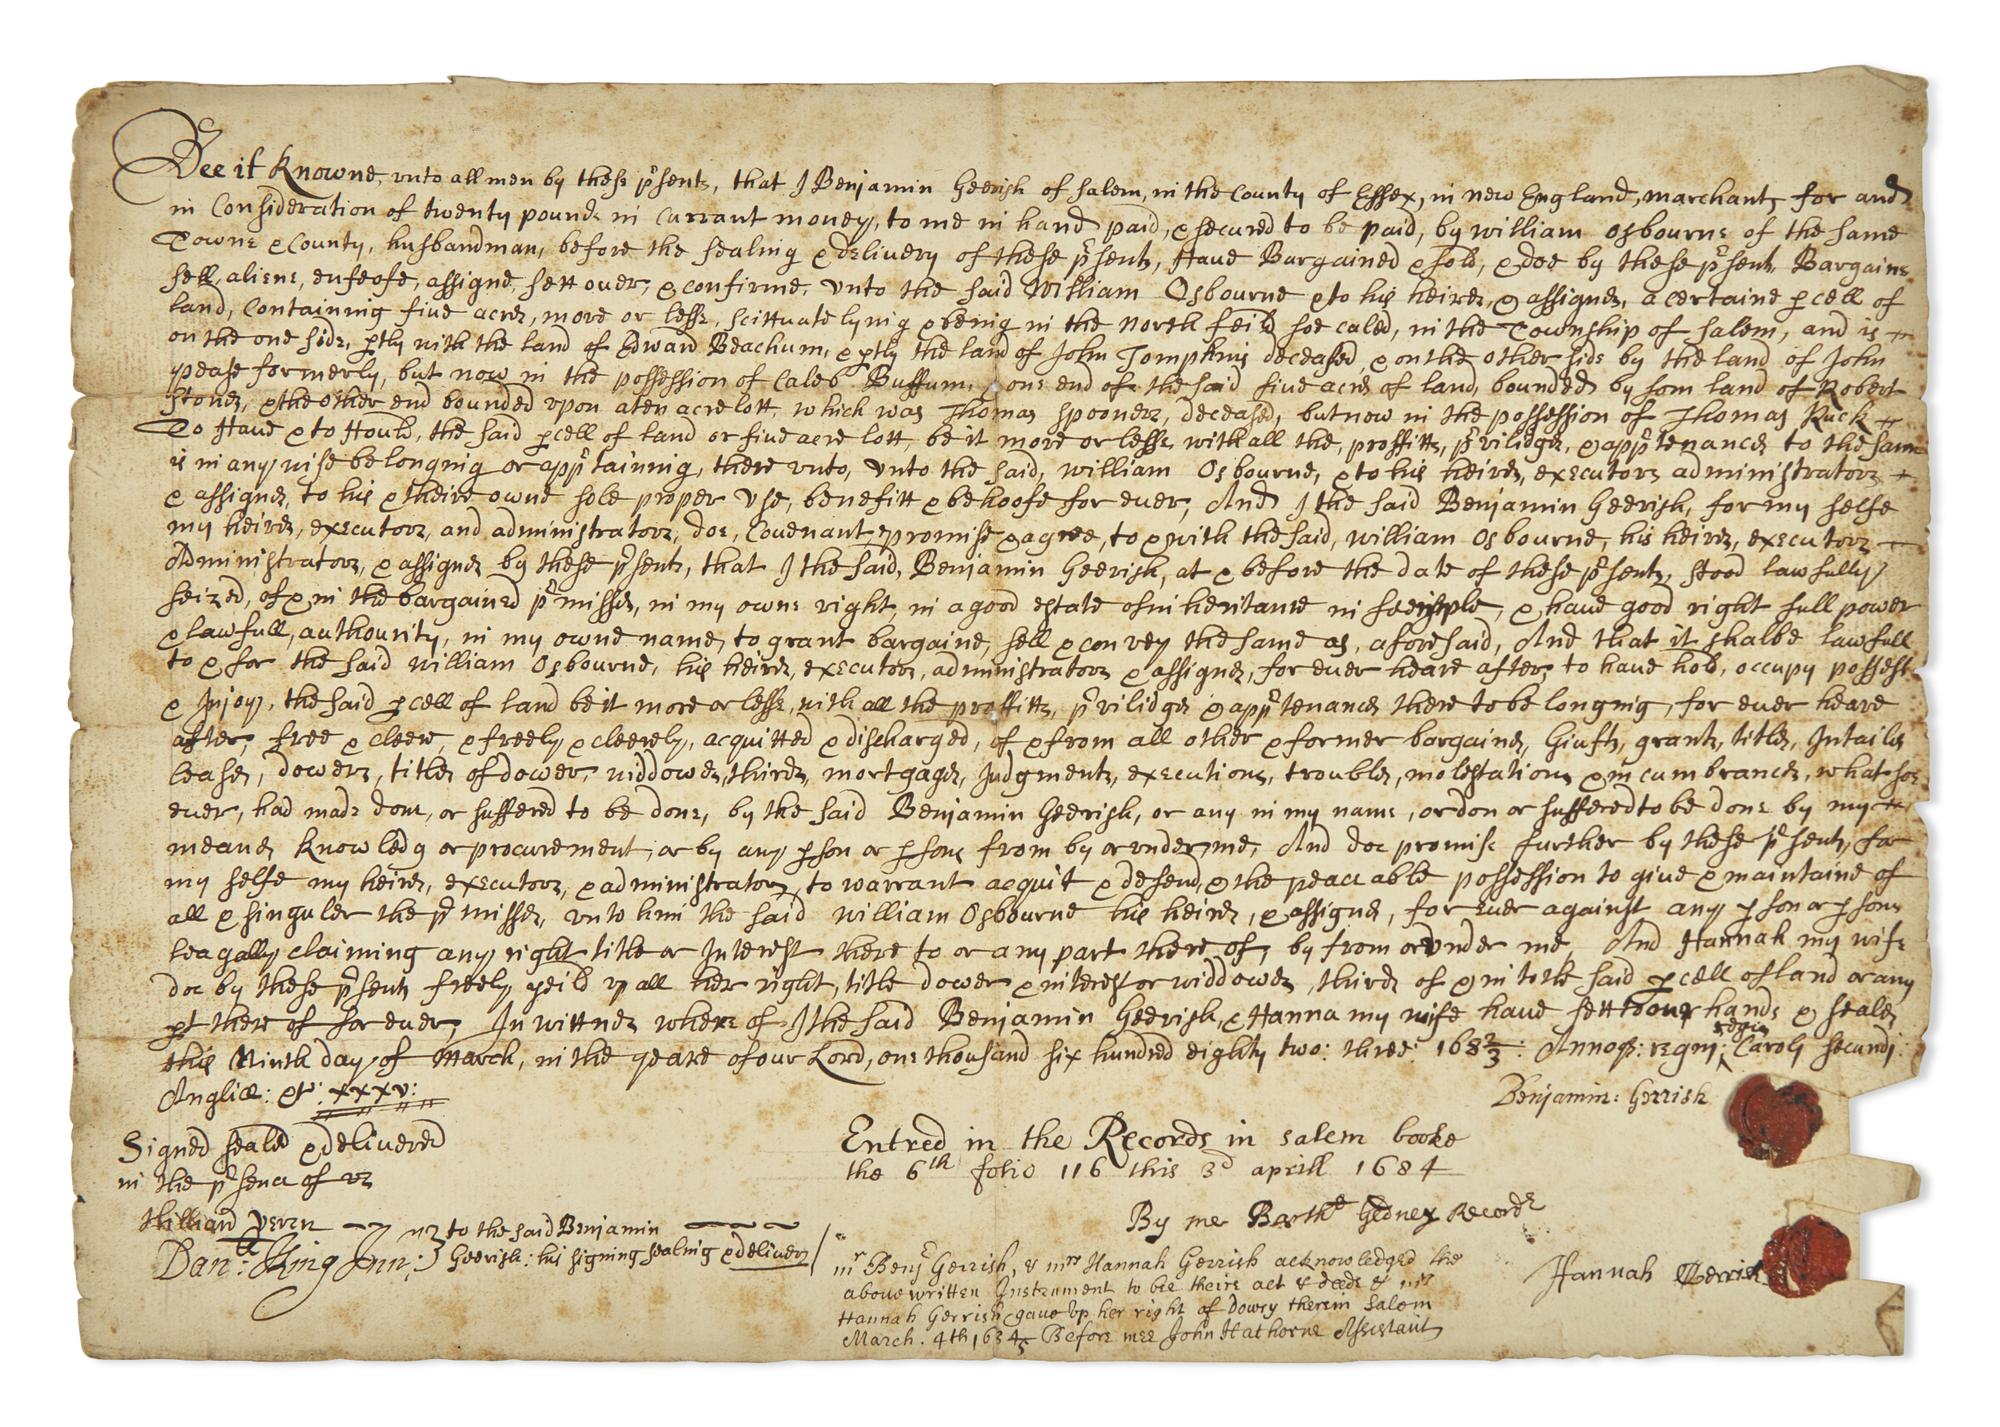 Bee it Knowne, vnto all men by these p^rsents, that I Benjamin Geerish of Salem, in the County of Essex, in new England, marchant, for and
in Consideration of twenty pounds in Currant money, to me in hand paid, & secured to be paid, by william Osbourne of the same
Towne & County, husbandman, before the sealing & delivery of these p^rsents, Haue Bargained & sold, & doe by these p^rsents Bargaine
sell, aliene, enfeofe, assigne, sett over, & confirme, vnto the said William Osbourne & to his heires, & assignes, a certaine pcell of
land, Containing fiue acres, more or lesse, scittuate lying & being in the North feild soe caled, in the Township of Salem, and is
on the one side, ptly with the land of Edward Beachum, & ptly the land of John Tompkins deceased, & on the other side by the land of John
pease formerly, but now in the possession of Caleb Buffum, one end of the said fiue acres of land, bounded by som land of Robert
Stones, & the other end bounded vpon a ten acre lott, which was Thomas Spooners, deceased, but now in the possession of Thomas Ruck
To Haue & to Hould, the said pcell of land or fiue acre lott, be it more or lesse, with all the, proffitts, p^rvilidges, & app^rtenances to the same
is in any wise belonging or app^rtaining, there vnto, vnto the said, William Osbourne, & to his heires, executors administrators
& assignes, to his & theire owne sole proper vse, benefitt & behoofe for euer, And I the said Benjamin Geerish, for my selfe
my heires, executors, and administrators, doe, Couenant, promise & agree, to & with the said, william Osbourne, his heires, executors
Administrators, & assignes by these p^rsents, that I the said, Benjamin Geerish, at & before the date of these p^rsents, stood lawfully
seized, of & in the bargained p^rmisses, in my owne right in a good estate of inheritance in feesimple, & haue good right full power
& lawfull, authourity, in my owne name, to grant bargaine, sell & convey the same as, aforesaid, And that it shalbe lawfull
to & for the said william Osbourne, his heires, executors, administrators & assignes, for euer heare after, to haue hold, occupy possess
& Injoy, the said pcell of land be it more or lesse, with all the proffitts, p^rvilidges & app^rtenances there to belonging, for euer heare
after, free & cleere, & freely & cleerely, acquitted & discharged, of & from all other & former bargaines, Giufts, grants, titles, Intailes
leases, dowers, titles of dower, widdowes, thirds, mortgages, Judgments, executions, troubles, molestations & incumbrances, what soe
euer, had made done, or suffered to be done, by the said Benjamin Geerish, or any in my name, or don or suffered to be done by my
meanes Knowledg or procurement, or by any pson or psons from by or vnder me, And doe promise further by these p^rsents, for
my selfe my heires, executors, & administrators, to warrant acquit & defend, & the peacable possession to giue & maintaine of
all & singuler the p^rmisses, vnto him the said william Osbourne his heires, & assignes, for euer against any pson or psons
leagally claiming any right title or Interest there to or any part there of, by from or Vnder me, And Hannah my wife
doe by these p^rsents freely, yeild vp all her right, title dower & interest or widdowes, thirds of & in to the said pcell of land or any
pt there of for euer, In wittnes where of I the said Benjamin Geerish, & Hanna my wife haue sett to our hands & seales
this Ninth day of March, in the yeare of our Lord, one thousand six hundred eighty two: three: 168 2/3: Annoq: regni: regis Caroli secundi:
Angliæ: &c: xxxv:
Benjamin: Gerrish
Signed seald & delivered
in the p^rsence of vs
Hilliard Veren
Dan^ll: King Jun:
to the said Benjamin
Geerish: his signing sealing & delivery
Entred in the Records in salem booke
the 6^th folio 116 this 3^d aprill 1684
By me Barth^o Gedney Record^r
m^r Benj Gerrish, & m^rs Hannah Gerrish acknowledged the
above written Instrument to bee theire act & deede & m^rs
Hannah Gerrish gaue vp her right of Dowry therein Salem
March. 4th 168 4/5 Before mee John Hathorne Assistant
Hannah Gerrish